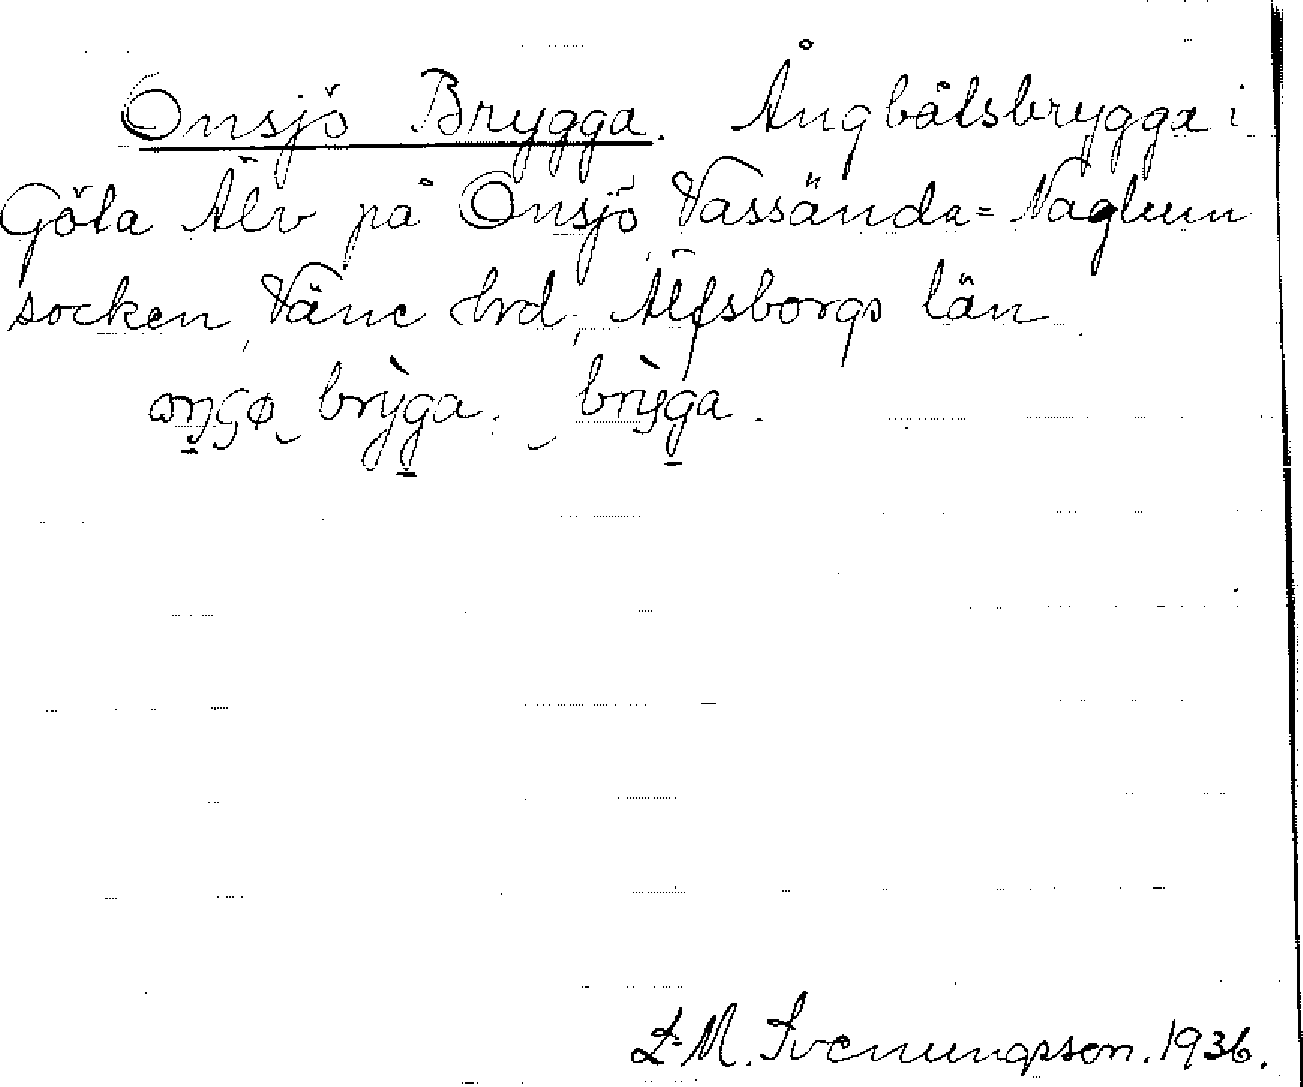 Onsjö Brygga. Ångbåtsbrygga i
Göta Älv på Onsjö, Vassända=Naglum
socken, Väne hrd, Älfsborgs län.
bry̆̀ga. brỳga.
L. M. Svenungsson. 1936.